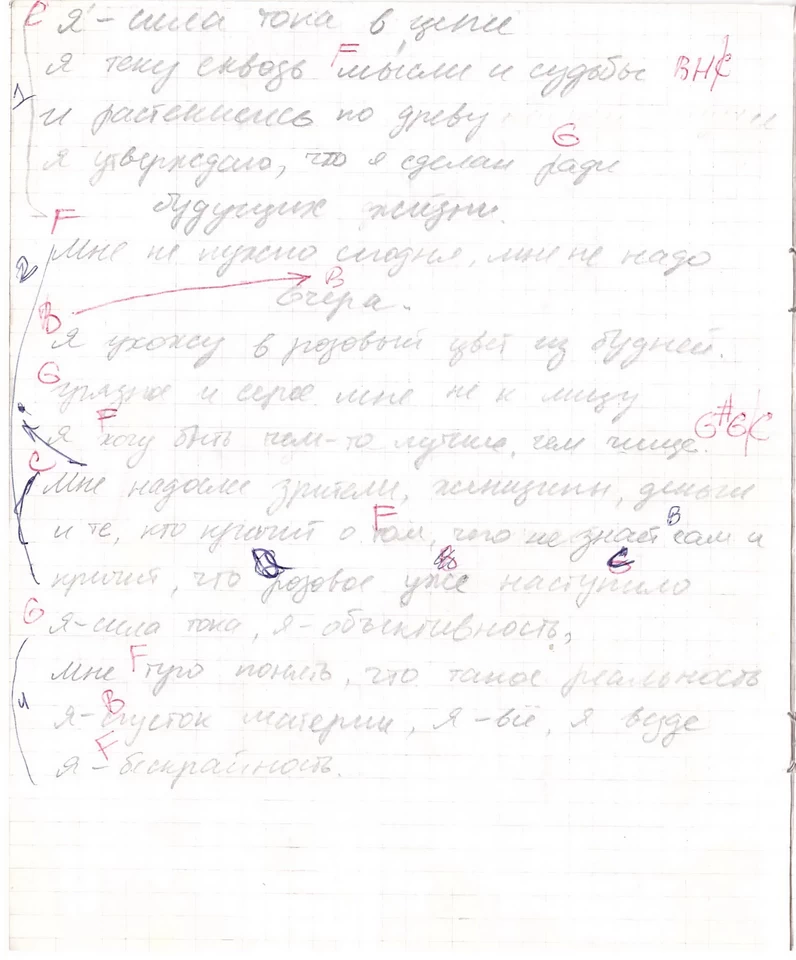 C Я - сила тока в цепи
я теку сквозь F мысли и судьбы BHC
и растекаюсь по древу
G
я утверждаю, что я сделан ради
будущих жизни.
F
Мне не нужно сегодня, мне не надо
B
вчера.
B
я ухожу в розовый цвет из будней.
G
грязное и серое мне не к лицу
F G#GC
я хочу быть чем-то лучше, чем чище.
C
Мне надоели зрители, женщины, деньги
F B
и те, кто кричит о том, чего не знает сам и
C
кричит, что розовое уже наступило
G
я-сила тока, я-объективность,
мне F туго понять, что такое реальность
B
я-сгусток материи, я-всё, я везде
F
я - бескрайность.